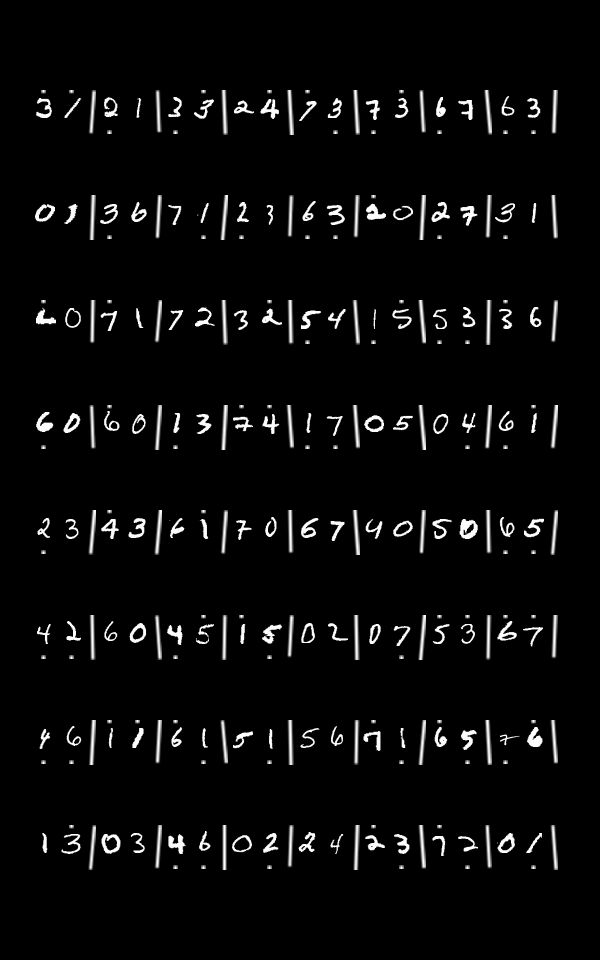 3 1 | 2 1 | 3 3 | 2 4 | 7 3 | 7 3 | 6 7 | 6 3 |
0 1 | 3 6 | 7 1 | 2 3 | 6 3 | 2 0 | 2 7 | 3 1 |
2 0 | 7 1 | 7 2 | 3 2 | 5 4 | 1 5 | 5 3 | 3 6 |
6 0 | 6 0 | 1 3 | 7 4 | 1 7 | 0 5 | 0 4 | 6 1 |
2 3 | 4 3 | 6 1 | 7 0 | 6 7 | 4 0 | 5 0 | 6 5 |
4 2 | 6 0 | 4 5 | 1 5 | 0 2 | 0 7 | 5 3 | 6 7 |
4 6 | 1 1 | 6 1 | 5 1 | 5 6 | 7 1 | 6 5 | 7 6 |
1 3 | 0 3 | 4 6 | 0 2 | 2 4 | 2 3 | 7 2 | 0 1 |